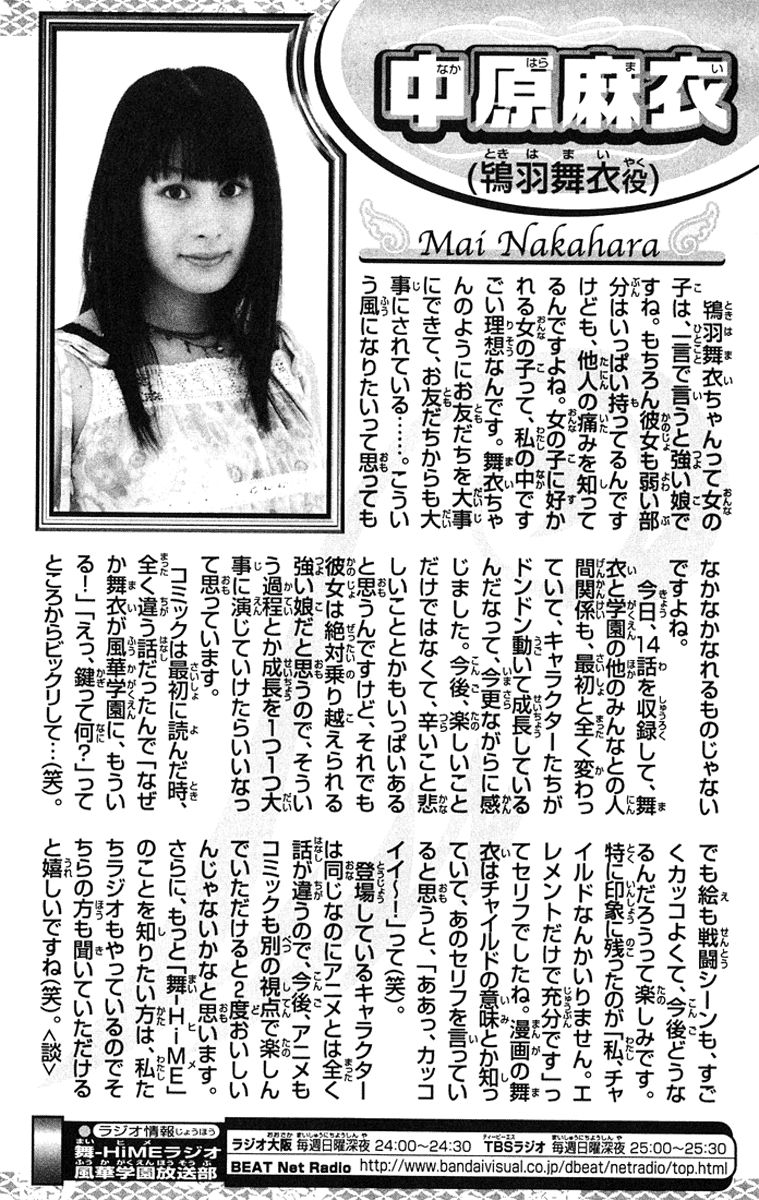 中原麻衣
(鴇羽舞衣役)
Mai Nakahara
鴇羽舞衣ちゃんって女の
子は、一言で言うと強い娘で
すね。もちろん彼女も弱い部
分はいっぱい持ってるんです
けども、他人の痛みを知って
るんですよね。女の子に好か
れる女の子って、私の中です
ごい理想なんです。舞衣ちゃ
んのようにお友だちを大事
にできて、お友だちからも大
事にされている……。こうい
う風になりたいって思っても
なかなかなれるものじゃない
ですよね。
今日、14話を収録して、舞
衣と学園の他のみんなとの人
間関係も、最初と全く変わっ
ていて、キャラクターたちが
ドンドン動いて成長している
んだなって、今更ながらに感
じました。今後、楽しいこと
だけではなくて、辛いこと悲
しいこととかもいっぱいある
と思うんですけど、それでも
彼女は絶対乗り越えられる
強い娘だと思うので、そうい
う過程とか成長を1つ1つ大
事に演じていけたらいいなっ
て思っています。
コミックは最初に読んだ時、
全く違う話だったんで「なぜ
か舞衣が風華学園に、もうい
る!」「えっ、鍵って何?」って
ところからビックリして…(笑)。
でも絵も戦闘シーンも、すご
くカッコよくて、今後どうな
るんだろうって楽しみです。
特に印象に残ったのが「私、チャ
イルドなんかいりません。エ
レメントだけで充分です」っ
てセリフでしたね。漫画の舞
衣はチャイルドの意味とか知っ
ていて、あのセリフを言ってい
ると思うと、「ああっ、カッコ
イイ〜!」って(笑)。
登場しているキャラクター
は同じなのにアニメとは全く
話が違うので、今後、アニメも
コミックも別の視点で楽しん
でいただけると2度おいしい
んじゃないかなと思います。
さらに、もっと「舞-HiME」
のことを知りたい方は、私た
ちラジオもやっているのでそ
ちらの方も聞いていただける
と嬉しいですね(笑)。<談>
●ラジオ情報
舞-HiMEラジオ
風華学園放送部
ラジオ大阪 毎週日曜深夜 24:00〜24:30 TBSラジオ 毎週日曜深夜 25:00〜25:30
BEAT Net Radio http://www.bandaivisual.co.jp/dbeat/netradio/top.html